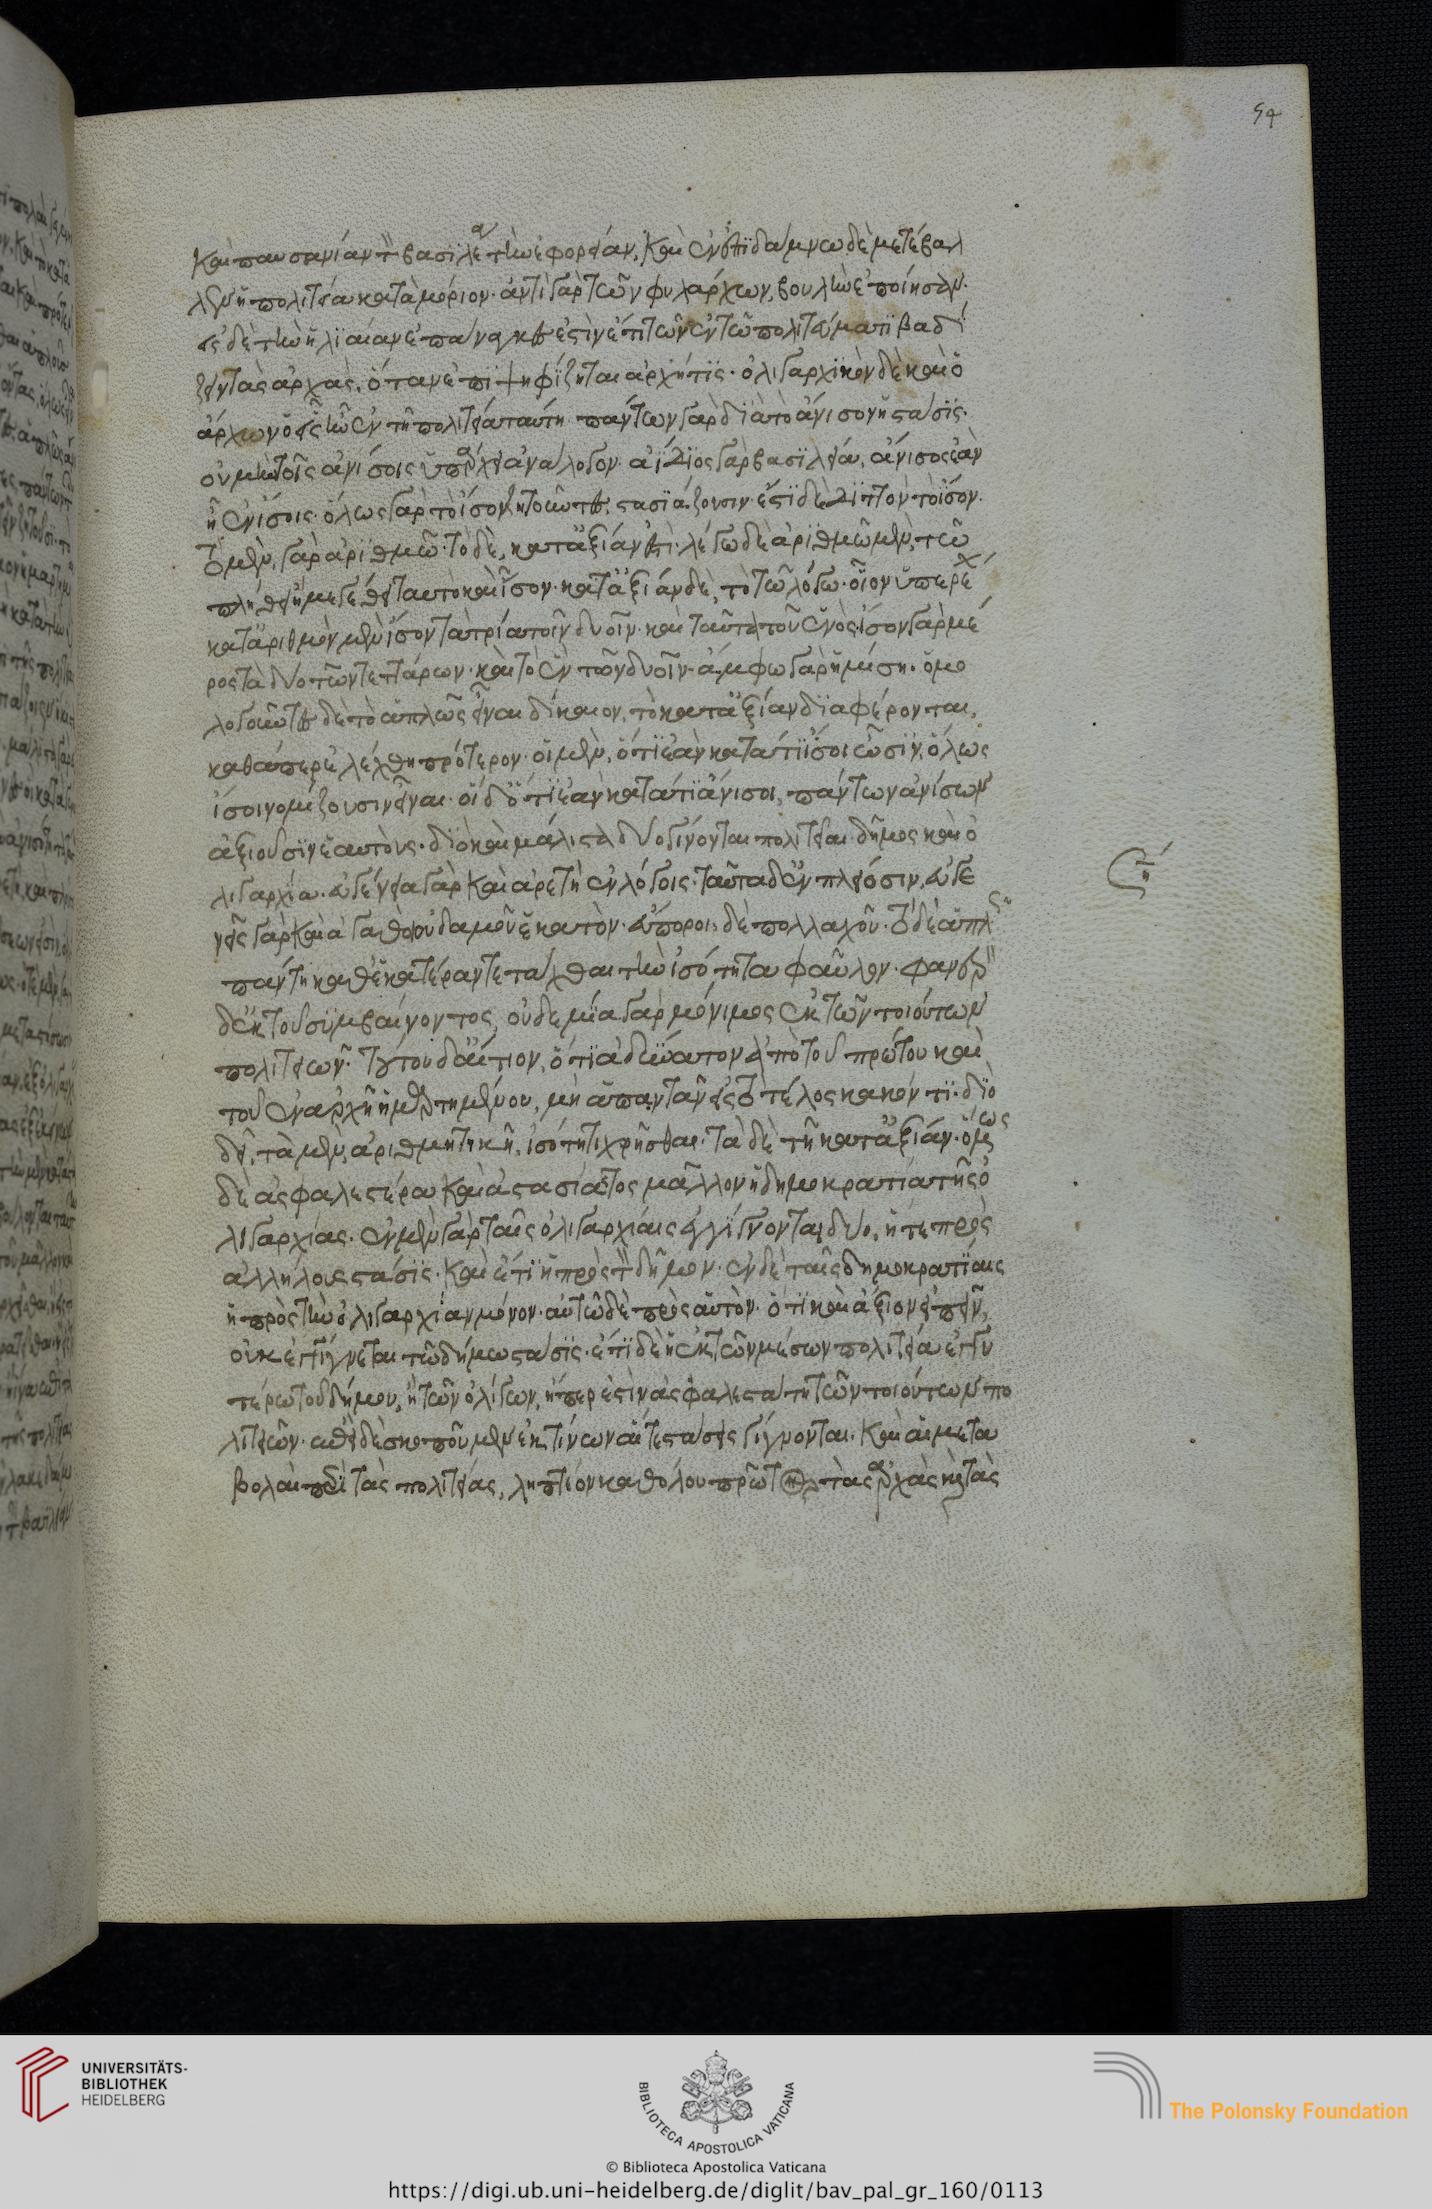 54
καὶ παυσανίαν τὸν βασιλέα τὴν ἐφορείαν. καὶ ἐν ἐπιδάμνω δὲ μετέβαλ
λεν ἡ πολιτεία κατὰ μόριον· ἀντὶ γὰρ τῶν φυλάρχων, βουλὴν ἐποίησαν·
εἰς δὲ τὴν ἡλιαίαν ἐπάναγκές ἐστιν ἔτι τῶν ἐν τῶ πολιτεύματι βαδί
ζειν τὰς ἀρχὰς, ὅταν ἐπιψηφίζηται ἀρχή τις· ὀλιγαρχικὸν δὲ καὶ ὁ
ἄρχων ὁ εἷς ἦν ἐν τῆ πολιτεία ταύτη πάντων γὰρ διὰ τὸ ἄνισον ἡ στάσις·
οὐ μὴν τοῖς ἀνίσοις ὑπάρχει ἀνάλογον· ἀΐδιος γὰρ βασιλεία, ἄνισος ἐὰν
ἦ ἐν ἴσοις· ὅλως γὰρ τὸ ἴσον ζητοῦντες στασιάζουσιν· ἔστι δὲ διττὸν τὸ ἴσον·
τὸ μὲν γὰρ ἀριθμῶ· τὸ δὲ, κατ' ἀξίαν ἐστί· λέγω δὲ ἀριθμῶ μὲν, τῶ
πλήθει ἢ μεγέθει ταυτὸ καὶ ἴσον· κατ' ἀξίαν δὲ, τὸ τῶ λόγω· οἷον ὑπερέχει
κατ' ἀριθμὸν μὲν ἴσον τὰ τρία τοῖν δυοῖν· καὶ ταῦτα τοῦ ἑνός· ἴσον γὰρ μέ
ρος τὰ δύο τῶν τεττάρων· καὶ τὸ ἓν τῶν δυοῖν· ἄμφω γὰρ ἡμίση· ὁμο
λογοῦντες δὲ τὸ ἁπλῶς εἶναι δίκαιον, τὸ κατ' ἀξίαν διαφέρονται,
καθάπερ ἐλέχθη πρότερον· οἱ μὲν, ὅτι ἐὰν κατά τι ἴσοι ὦσιν, ὅλως
ἴσοι νομίζουσιν εἶναι· οἱ δ' ὅτι ἐὰν κατά τι ἄνισοι, πάντων ἀνίσων
ἀξιοῦσιν ἑαυτούς· διὸ καὶ μάλιστα δύο γίνονται πολιτεῖαι δῆμος καὶ ὀ
λιγαρχία· εὐγένεια γὰρ καὶ ἀρετὴ ἐν λόγοις· ταῦτα δ' ἐν πλείοσιν, εὐγε
νεῖς γὰρ καὶ ἀγαθοὶ οὐδαμοῦ ἑκατὸν· εὔποροι δὲ πολλαχοῦ· τὸ δὲ ἁπλῶς
πάντη καθ' ἑκατέραν τετάχθαι τὴν ἰσότητα φαῦλον· φανερὸν
δ' ἐκ τοῦ συμβαίνοντος, οὐδεμία γὰρ μόνιμος ἐκ τῶν τοιούτων
πολιτειῶν· τούτου δ' αἴτιον, ὅτι ἀδύνατον ἀπὸ τοῦ πρώτου καὶ
τοῦ ἐν ἀρχῆ ἡμαρτημένου, μὴ ἀπαντᾶν εἰς τὸ τέλος κακόν τι· διὸ
δεῖ, τὰ μὲν, ἀριθμητικῆ, ἰσότητι χρῆσθαι· τὰ δὲ τῆ κατ' ἀξίαν· ὅμως
δὲ ἀσφαλεστέρα καὶ ἀστασίαστος μᾶλλον ἡ δημοκρατία τῆς ὀ
λιγαρχίας. ἐν μὲν γὰρ ταῖς ὀλιγαρχίαις ἐγγίγνονται δύο, ἥ τε πρὸς
ἀλλήλους στάσις· καὶ ἔτι ἡ πρὸς τὸν δῆμον· ἐν δὲ ταῖς δημοκρατίαις
ἡ πρὸς τὴν ὀλιγαρχίαν μόνον· αὐτῶ δὲ πρὸς αὑτὸν· ὅτι καὶ ἄξιον εἰπεῖν,
οὐκ ἐγγίγνεται τῶ δήμω στάσις· ἔτι δὲ ἡ ἐκ τῶν μέσων πολιτεία ἐγγυ
τέρω τοῦ δήμου, ἢ τῶν ὀλίγων, ἥπερ ἐστὶν ἀσφαλεστάτη τῶν τοιούτων πο
λιτειῶν· ἐπεὶ δὲ σκοποῦμεν ἐκ τίνων αἵ τε στάσεις γίγνονται· καὶ αἱ μετα
βολαὶ περὶ τὰς πολιτείας, ληπτέον καθόλου πρῶτον τὰς ἀρχὰς καὶ τὰς
UNIVERSITÄTS-
BIBLIOTHEK
HEIDELBERG
BIBLIOTECA APOSTOLICA VATICANA
© Biblioteca Apostolica Vaticana
The Polonsky Foundation
https://digi.ub.uni-heidelberg.de/diglit/bav_pal_gr_160/0113